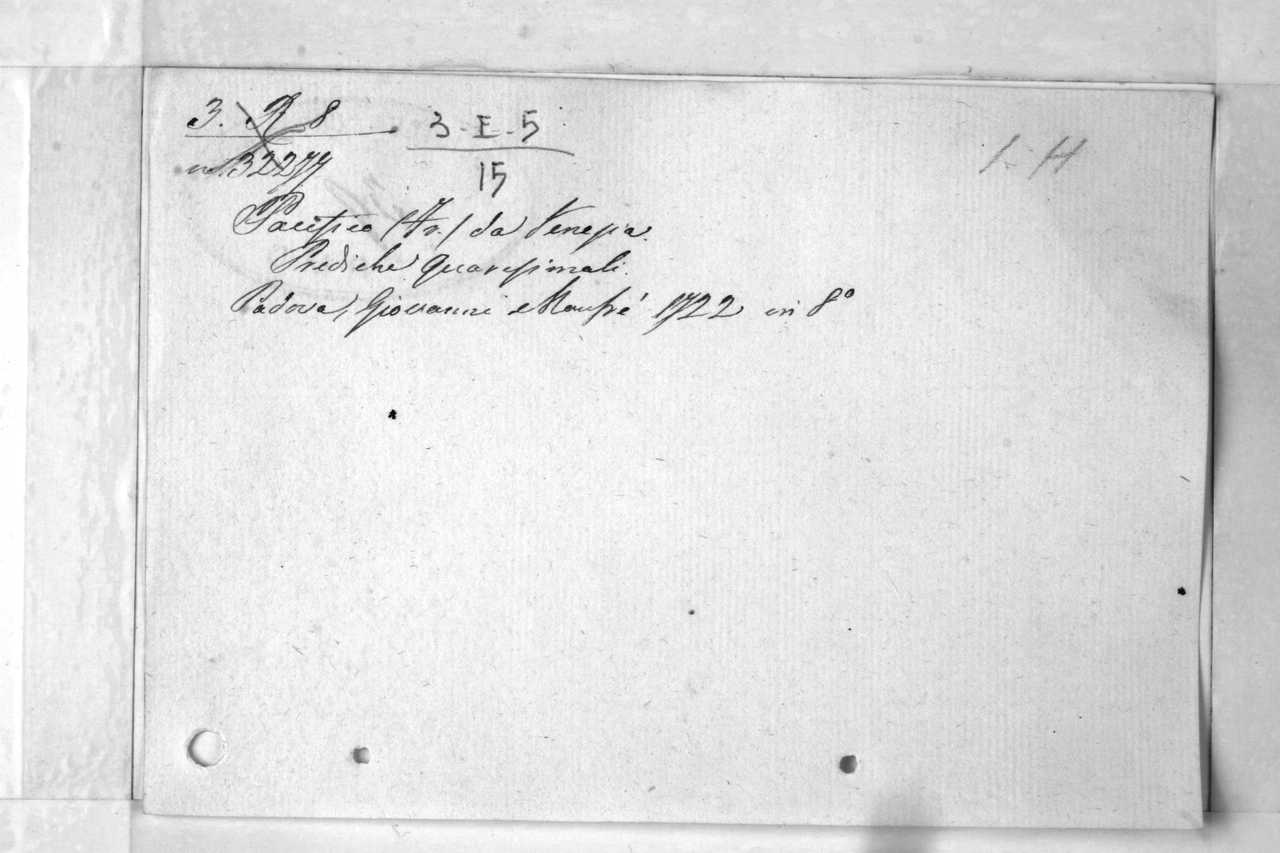 3. R 8
3-E-5
1-H
n. 32277
15
Pacifico (Fr.) da Venezia.
Prediche quaresimali.
Padova, Giovanni Manfrè 1722 in 8º